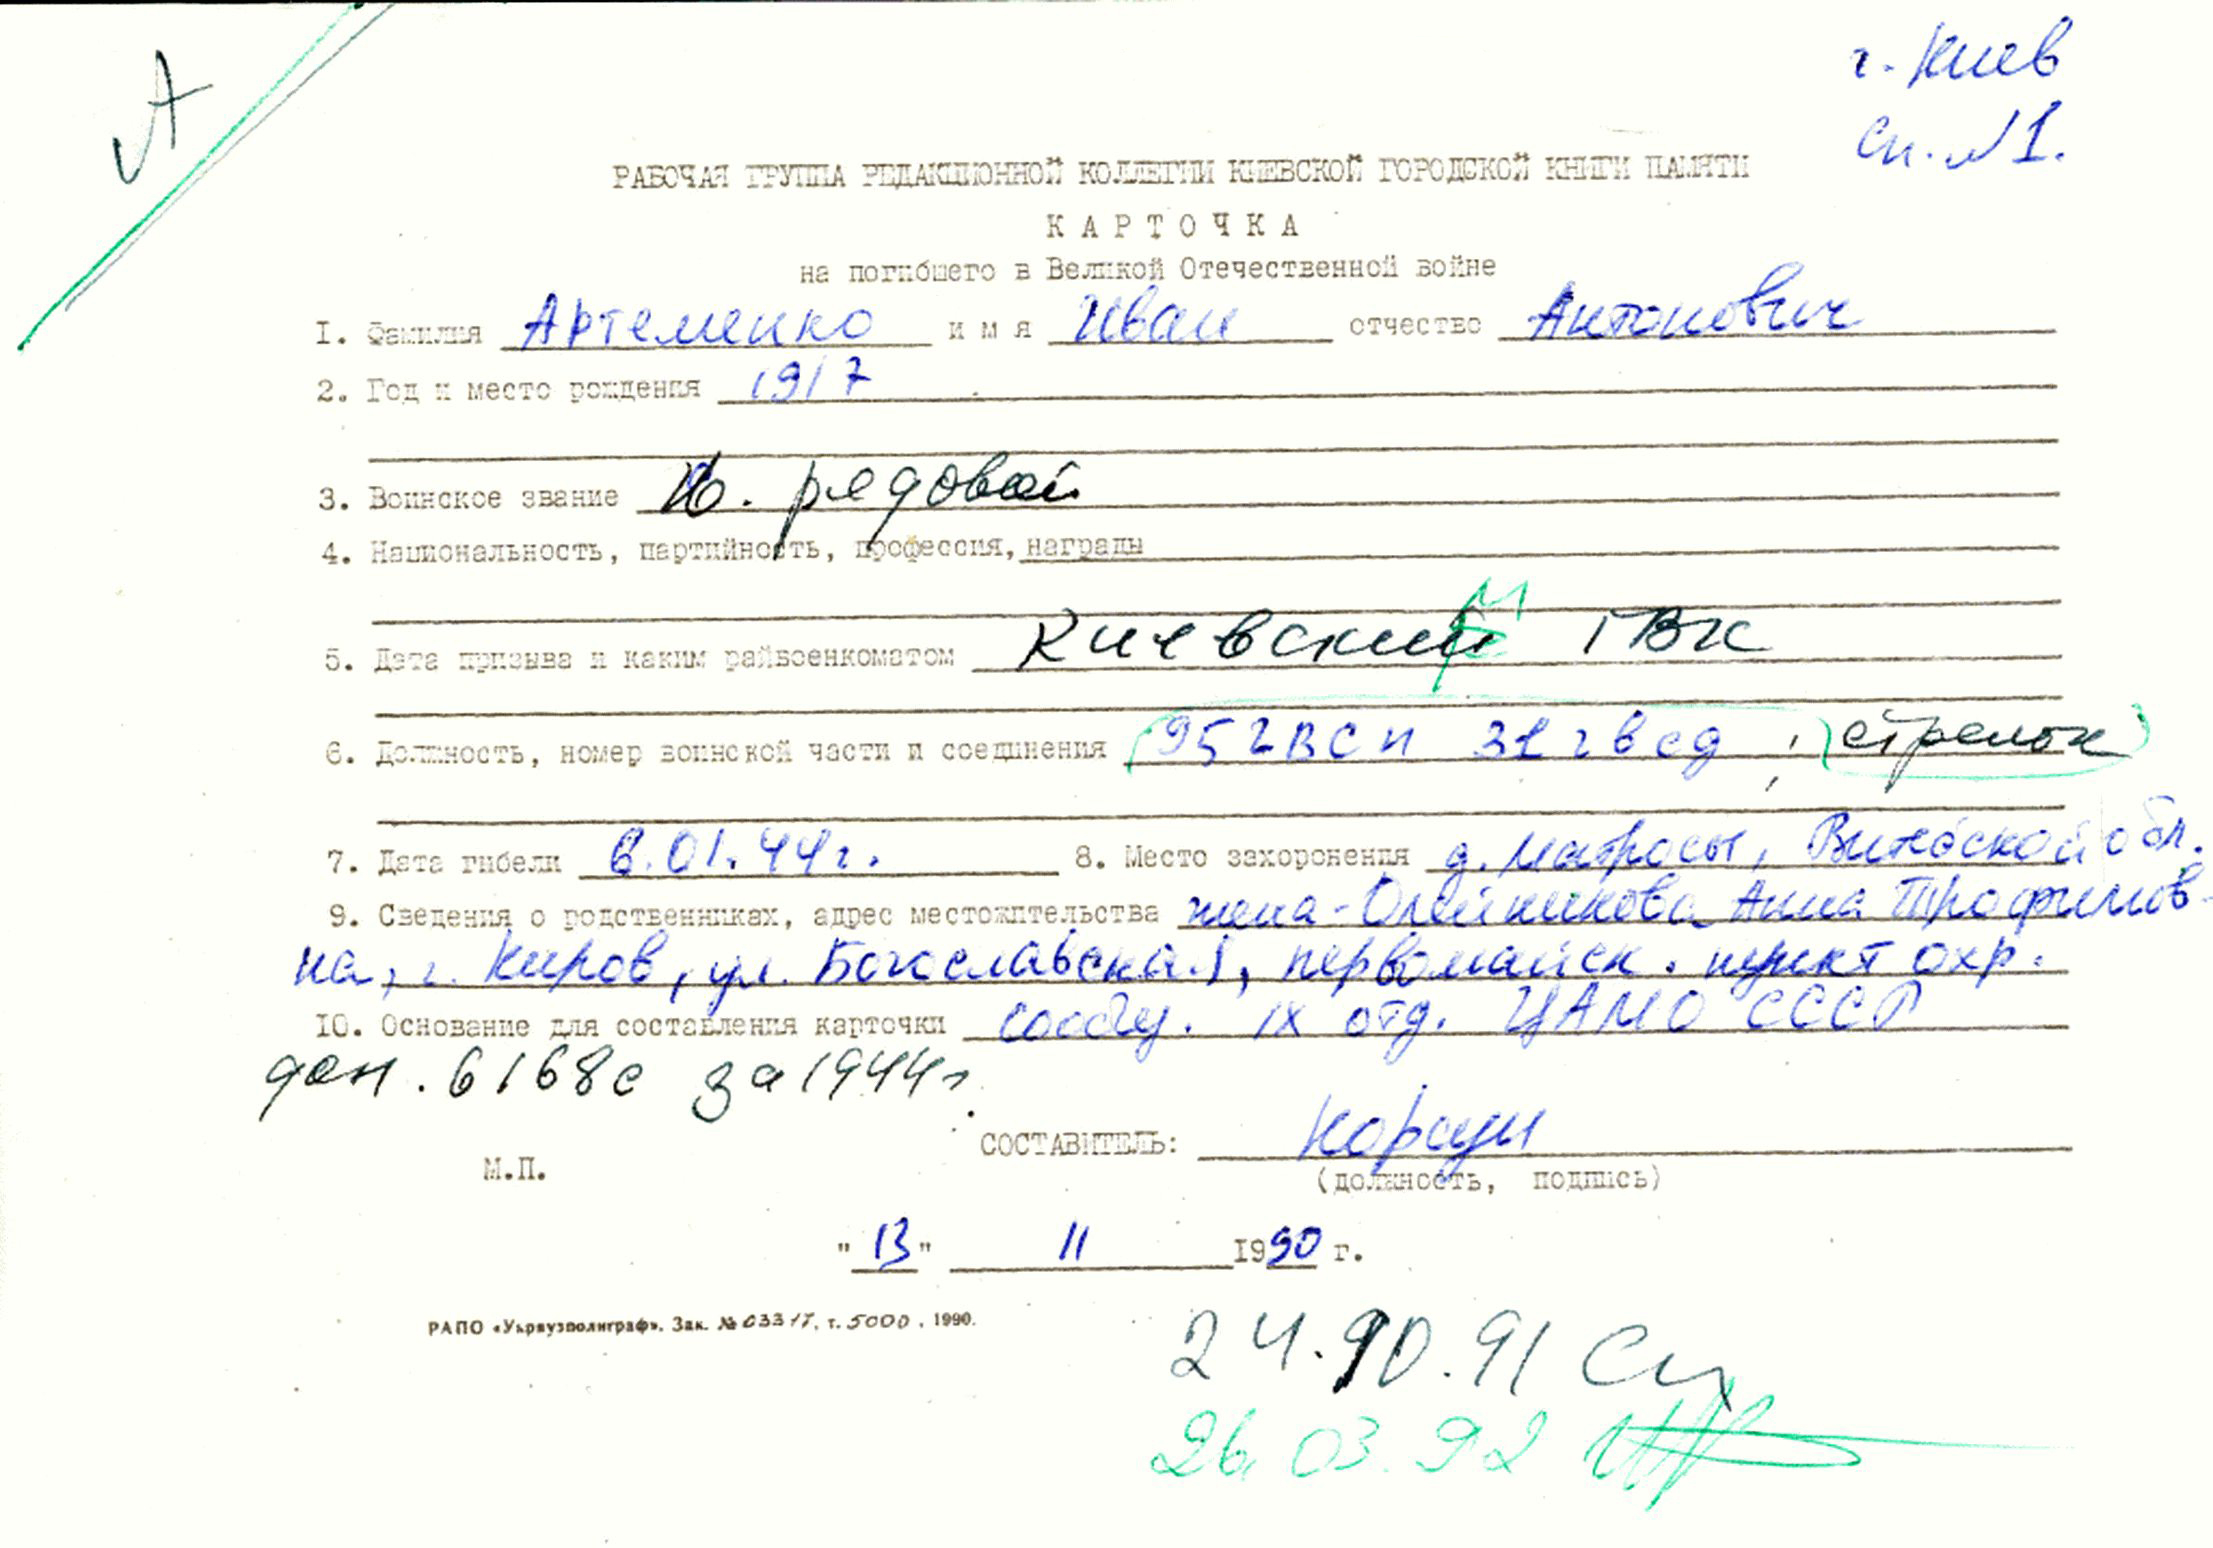 А
г. Киев
сп. №1.
РАБОЧАЯ ГРУППА РЕДАКЦИОННОЙ КОЛЛЕГИИ КИЕВСКОЙ ГОРОДСКОЙ КНИГИ ПАМЯТИ
КАРТОЧКА
на погибшего в Великой Отечественной войне
1. Фамилия Артеменко имя Иван отчество Антонович
2. Год и место рождения 1917
3. Воинское звание рядовой
4. Национальность, партийность, профессия, награды
5. Дата призыва и каким райвоенкоматом Киевский ГВК
6. Должность, номер воинской части и соединения 95 гвсп 31 гвсд, стрелок
7. Дата гибели 6.01.44г. 8. Место захоронения д. Матросы, Витебской обл.
9. Сведения о родственниках, адрес местожительства жена - Олейникова Анна Трофимов-
на, г. Киров, ул. Богославская, первомайск. пункт охр.
10. Основание для составления карточки сообщ. IX отд. ЦАМО СССР
дон. 6168с за 1944г.
СОСТАВИТЕЛЬ: Корсун
М.П.
(должность, подпись)
"13" 11 1990 г.
РАПО «Укрвузполиграф». Зак. № 0331Т, т. 5000, 1990.
24.10.91
26.03.92